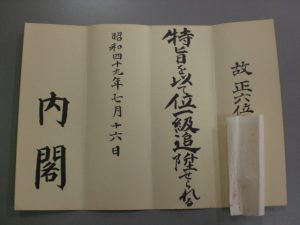 故正六位
特旨を以て位一級追陞せられる
昭和四十九年七月十六日
内閣